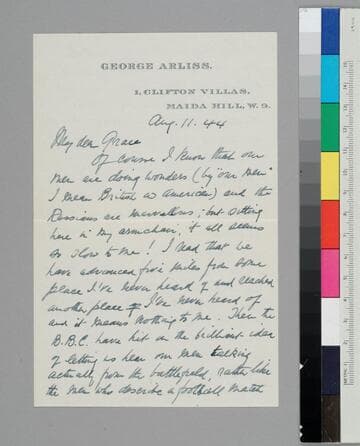 GEORGE ARLISS.
1, CLIFTON VILLAS,
MAIDA HILL, W. 9.
Aug. 11. 44
My dear Grace
Of course I know that our
men are doing wonders (by "our men"
I mean British & American) and the
Russians are marvellous; but sitting
here in my armchair, it all seems
so slow to me! I read that we
have advanced five miles from some
place I've never heard of and reached
another place I've never heard of
and it means nothing to me. Then the
B.B.C. have hit on the brilliant idea
of letting us hear our men talking
actually from the battlefield, rather like
the men who describe a football match